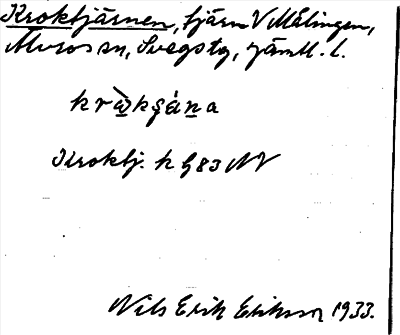 Kroktjärnen, tjärn V Målingen,
Älvros sn, Svegs tg, Jämtl. l.
kràksána
Kroktj. k G 83 NV
Nils Erik Eriksson 1933.